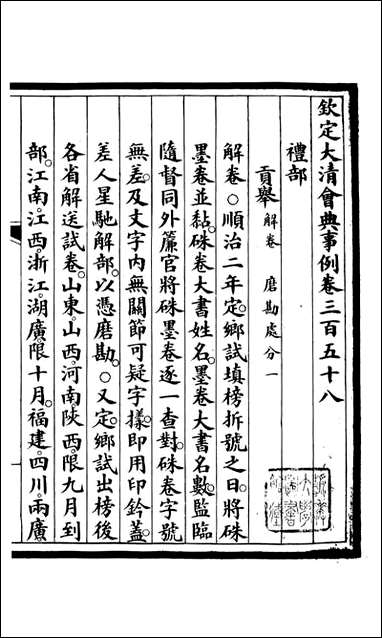 欽定大清會典事例卷三百五十八
禮部
貢舉 解卷 磨勘處分一
解卷○順治二年定。鄉試填榜拆號之日。將硃
墨卷並黏。硃卷大書姓名。墨卷大書名數。監臨
隨督同外簾官將硃墨卷逐一查對。硃卷字號
無差。及文字內無關節可疑字樣。即用印鈐蓋。
差人星馳解部。以憑磨勘。○又定。鄉試出榜後
各省解送試卷。山東。山西。河南。陝西。限九月到
部。江南。江西。浙江。湖廣。限十月。福建。四川。兩廣。